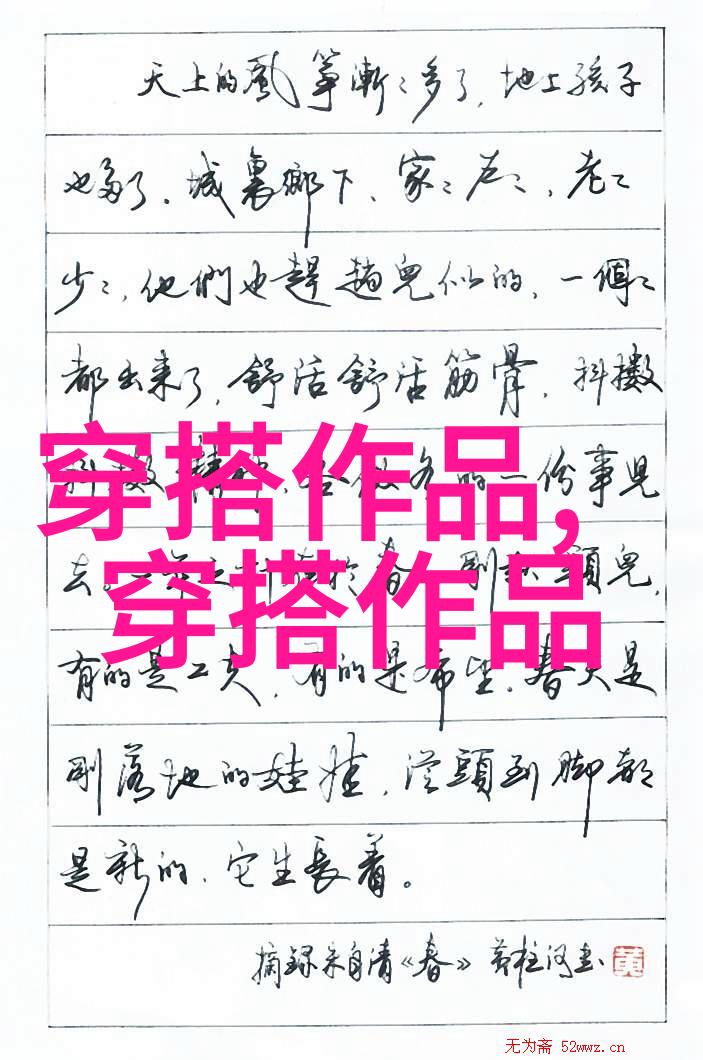 天上的風箏漸〻多了，地上孩子
也多了。城裏鄉下、家〻戶〻，老〻
少〻，他們也趕趟兒似的，一個〻
都出来了，舒活舒活筋骨，抖擻
的一份事兒
穿搭作品,
去。於春 剛 頭兒，
穿搭作品
有的是工夫，有的是希望。春天是
剛落地的娃娃，從頭到脚都
是新的，它生長着。
摘録朱自清《春》 黄柱河書 黄
无为斋 52wwz.cn